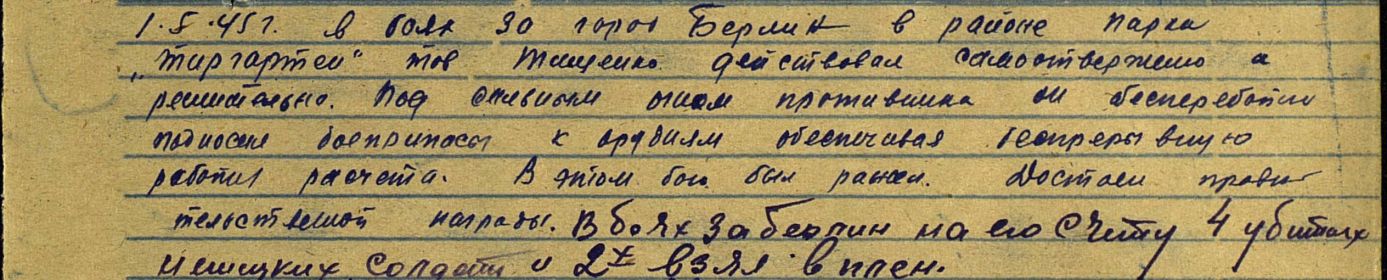 1.5.45г. в боях за город Берлин в районе парка
„Тиргартен" тов Тищенко действовал самоотвержено и
решительно. Под сильным огнем противника он бесперебойно
подносил боеприпасы к орудиям обеспечивая беспрерывную
работу расчета. В этом бою был ранен. Достоен прави-
тельственной награды. В боях за Берлин на его счету 4 убитых
немецких солдата и 2х взял в плен.